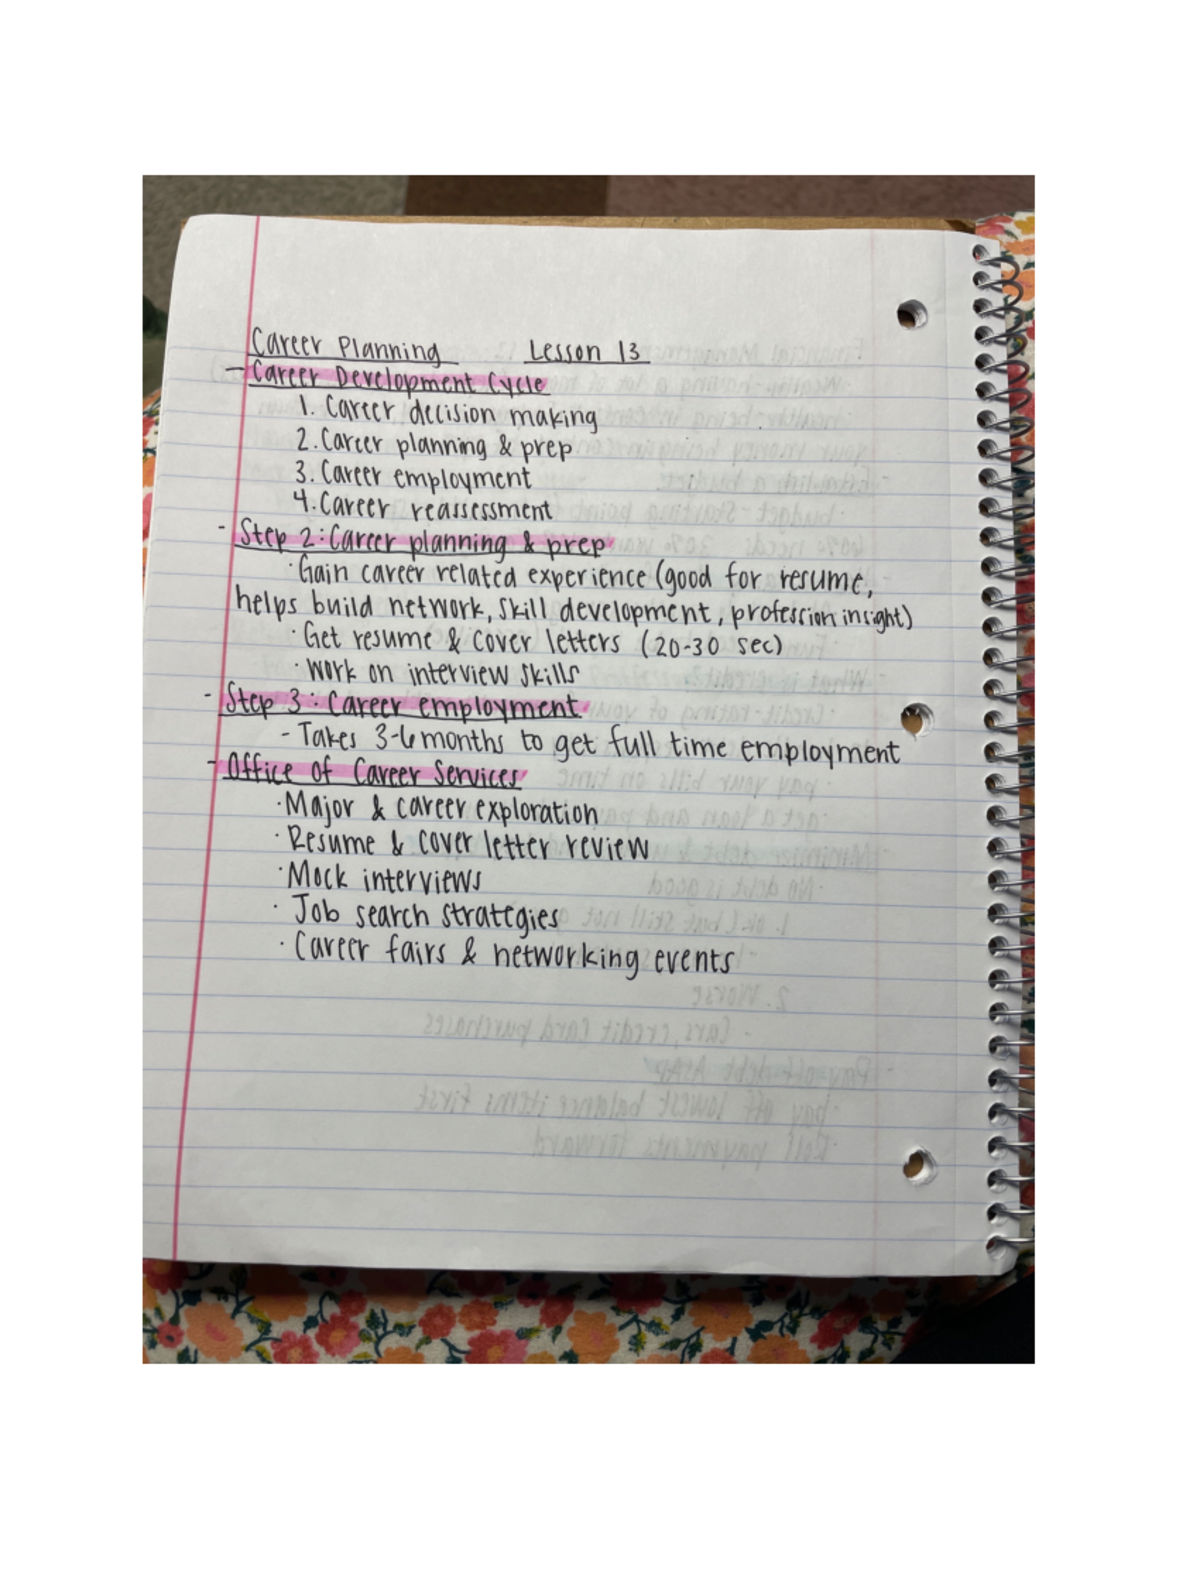 Career Planning Lesson 13
- Career Development Cycle
1. Career decision making
2. Career planning & prep
3. Career employment
4. Career reassessment
- Step 2: Career planning & prep
· Gain career related experience (good for resume,
helps build network, skill development, profession insight)
· Get resume & cover letters (20-30 sec)
· Work on interview skills
- Step 3: Career employment
- Takes 3-6 months to get full time employment
- Office of Career Services
· Major & career exploration
· Resume & cover letter review
· Mock interviews
· Job search strategies
· Career fairs & networking events